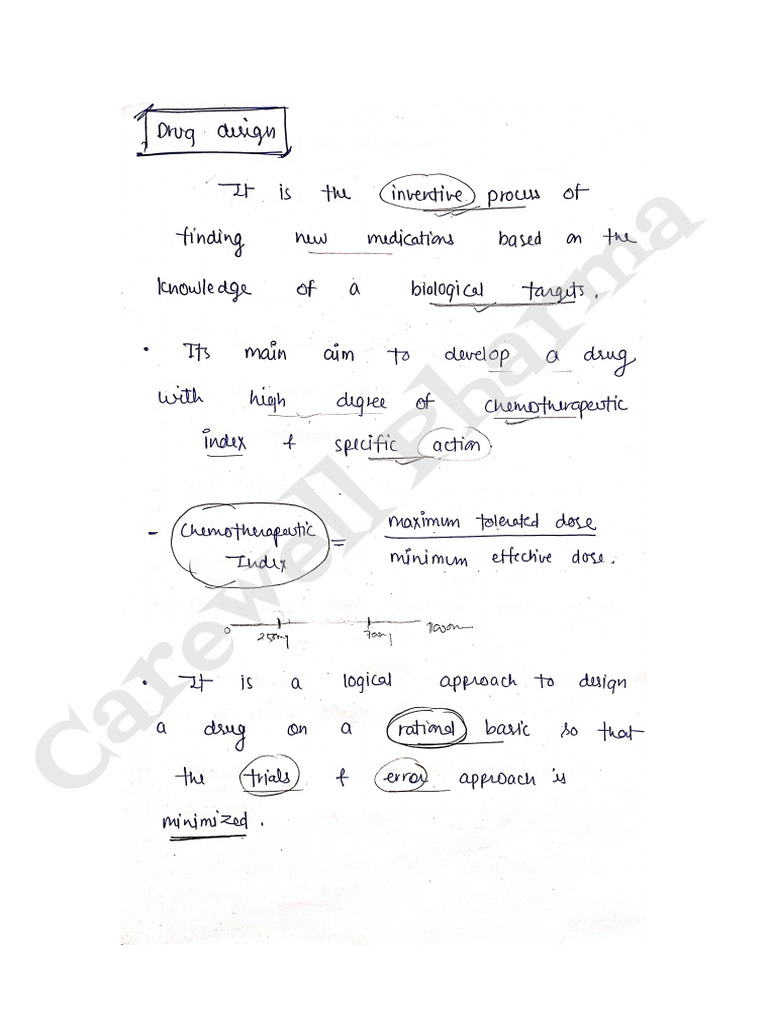 Drug design
It is the inventive process of
finding new medications based on the
knowledge of a biological targets.
• Its main aim to develop a drug
with high degree of chemotherapeutic
index & specific action.
- Chemotherapeutic Index = maximum tolerated dose
minimum effective dose.
0 250mg 700mg
• It is a logical approach to design
a drug on a rational basic so that
the trials & error approach is
minimized.
Carewell Pharma